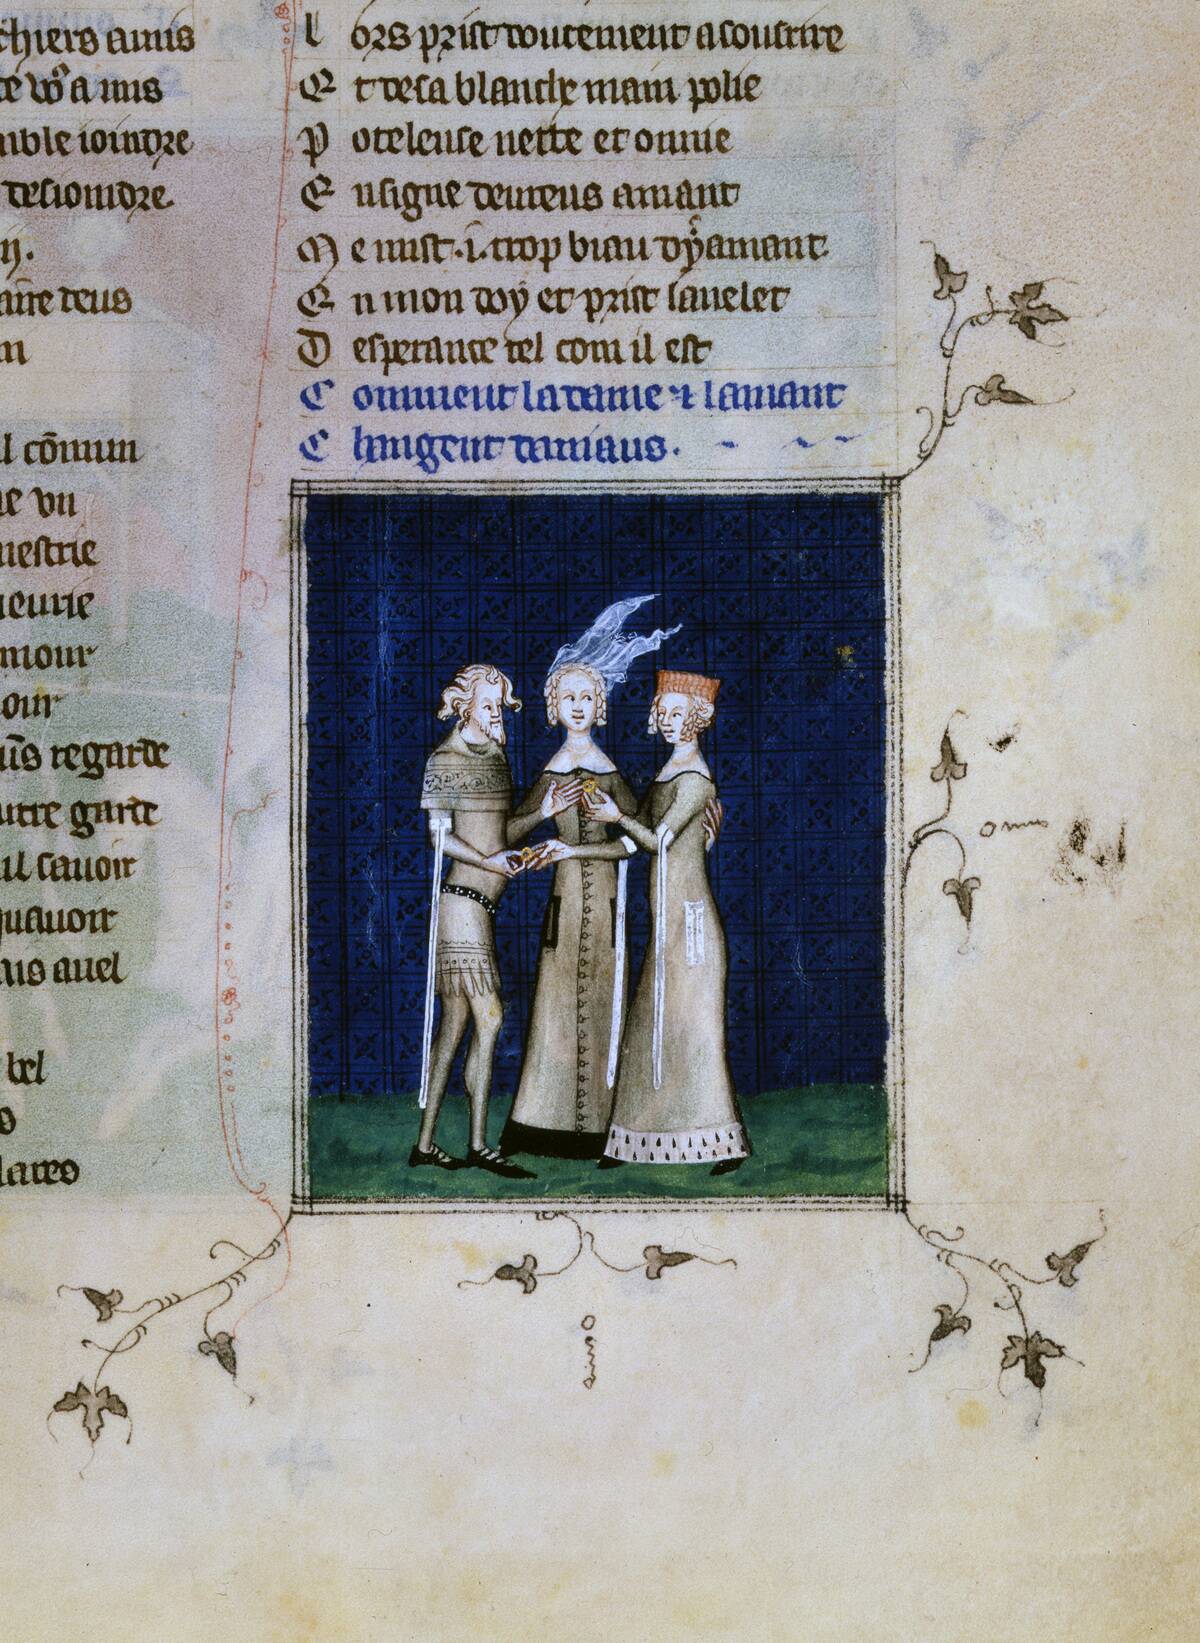 chiers amis
te vo9 a mis
mble ioindre
desioindre.
ij.
deus
l cōmun
ie vn
nestrie
ieurie
mour
our
us regarde
utre garde
il sauoir
quauoir
uis auel
bel
o
laceo
L ors prist doucement a sousrire
E t de sa blanche main polie
P oteleuse nette et onnie
E nsigne deureus amant
M e mist .i. trop biau dyamant.
E n mon doy et prist lanelet
D esperance tel com il est
C omment la dame & lamant
C hangent daniaus.
omnis
omnis